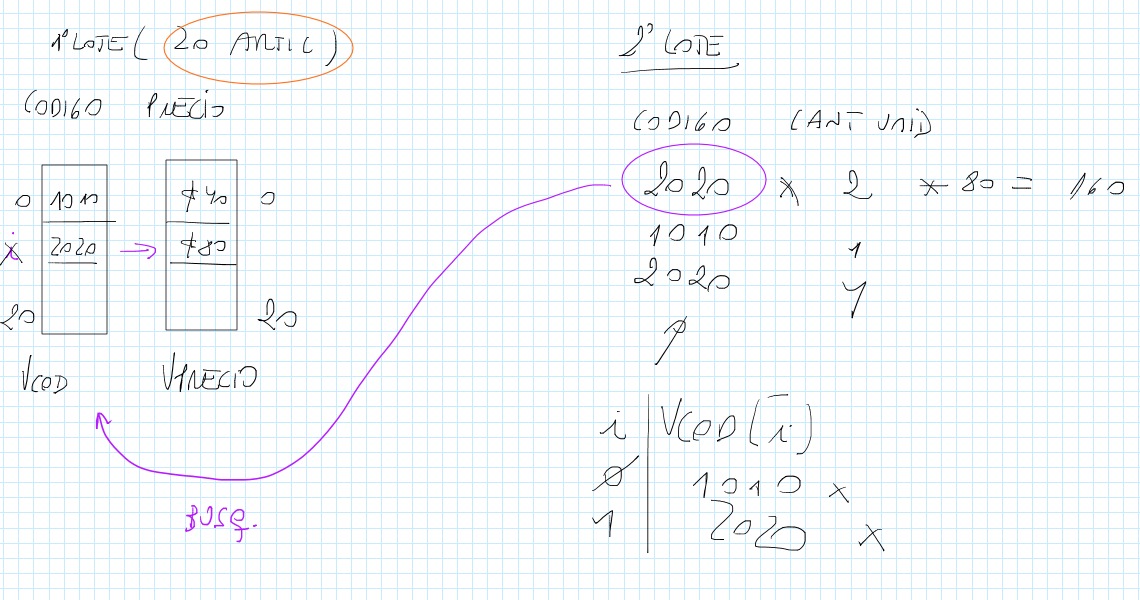 1° LOTE ( 20 ARTIC )
CODIGO PRECIO
0 1010 $40 0
i 2020 → $80
20 20
VCOD VPRECIO
BUSQ.
2° LOTE
CODIGO CANT UNID
2020 x 2 x 80 = 160
1010 1
2020
0
i VCOD(i)
0 1010 x
1 2020 x